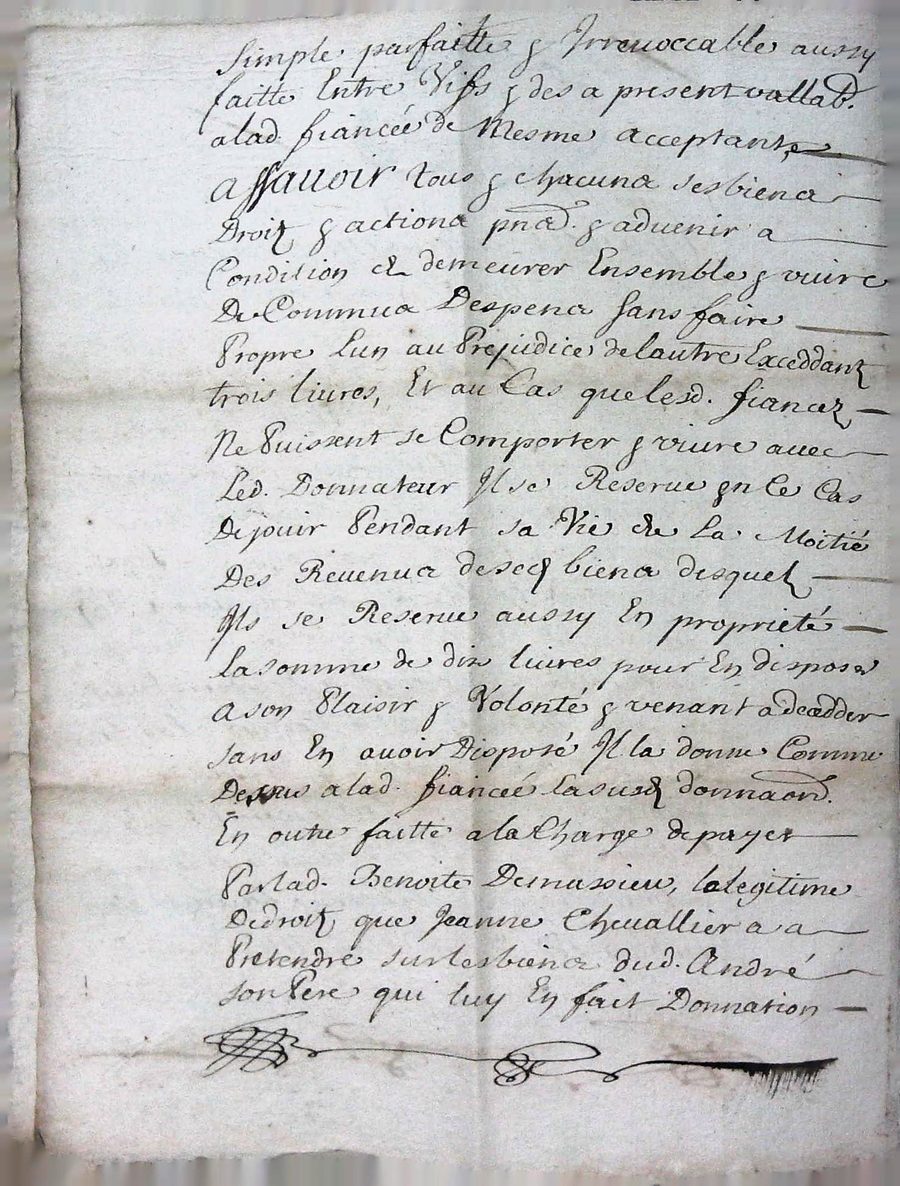 Simple parfaitte & Irreuoccable aussy
faitte Entre Vifs & des a present vallab.
alad. fiancée de Mesme acceptante
assauoir tous & chacuns ses biens
Droit & actions pnts. & aduenir a
Condition de demeurer Ensemble & viure
De Communs Despens sans faire
Propre Lun au Prejudice de lautre Exceddant
trois liures, Et au Cas que lesd. fiancez
Ne Puissent se Comporter & viure auec
Led. Donnateur Il se Reserue en Ce Cas
De jouir Pendant sa Vie de La Moitié
Des Reuenus desed biens desquel
Ils se Reserue aussy En proprieté
La somme de dix liures pour En disposer
a son Plaisir & Volonté & venant a decedder
sans En auoir Disposé Il la donne Comme
Dessus alad. fiancée la susd donnaon.
En outre faitte a la Charge de payer
Par lad. Benoite Demassieu, la legitime
De droit que Jeanne Cheuallier a a
Pretendre sur les biens dud. André
son Pere qui luy En fait Donnation